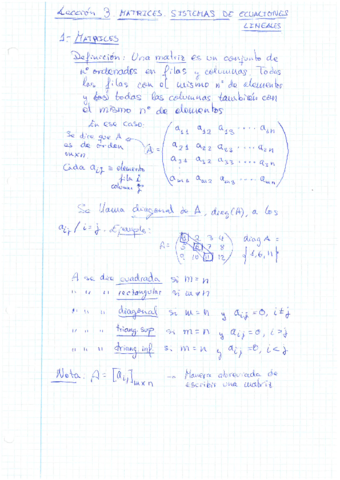 Lección 3 MATRICES. SISTEMAS DE ECUACIONES
LINEALES
1- MATRICES
Definición: Una matriz es un conjunto
de nº ordenados en filas y columnas. Todas
las filas con el mismo nº de elementos
y todas las columnas también con
el mismo nº de elementos
En ese caso:
Se dice que A
es de orden
m×n
A = ( a11 a12 a13 ... a1n
a21 a22 a23 ... a2n
a31 a32 a33 ... a3n
am1 am2 am3 ... amn )
Cada aij = elemento
fila i
columna j
Se llama diagonal de A, diag(A), a los
aij / i=j. Ejemplo:
A = ( 1 2 3 4
5 6 7 8
9 10 11 12 )
diag A =
{1, 6, 11}
A se dice cuadrada si m=n
" " " rectangular si m≠n
" " " diagonal si m=n y aij=0, i≠j
" " " triang. sup si m=n y aij=0, i>j
" " " triang. inf. si m=n y aij=0, i<j
Nota: A = [aij]m×n → Manera abreviada de
escribir una matriz